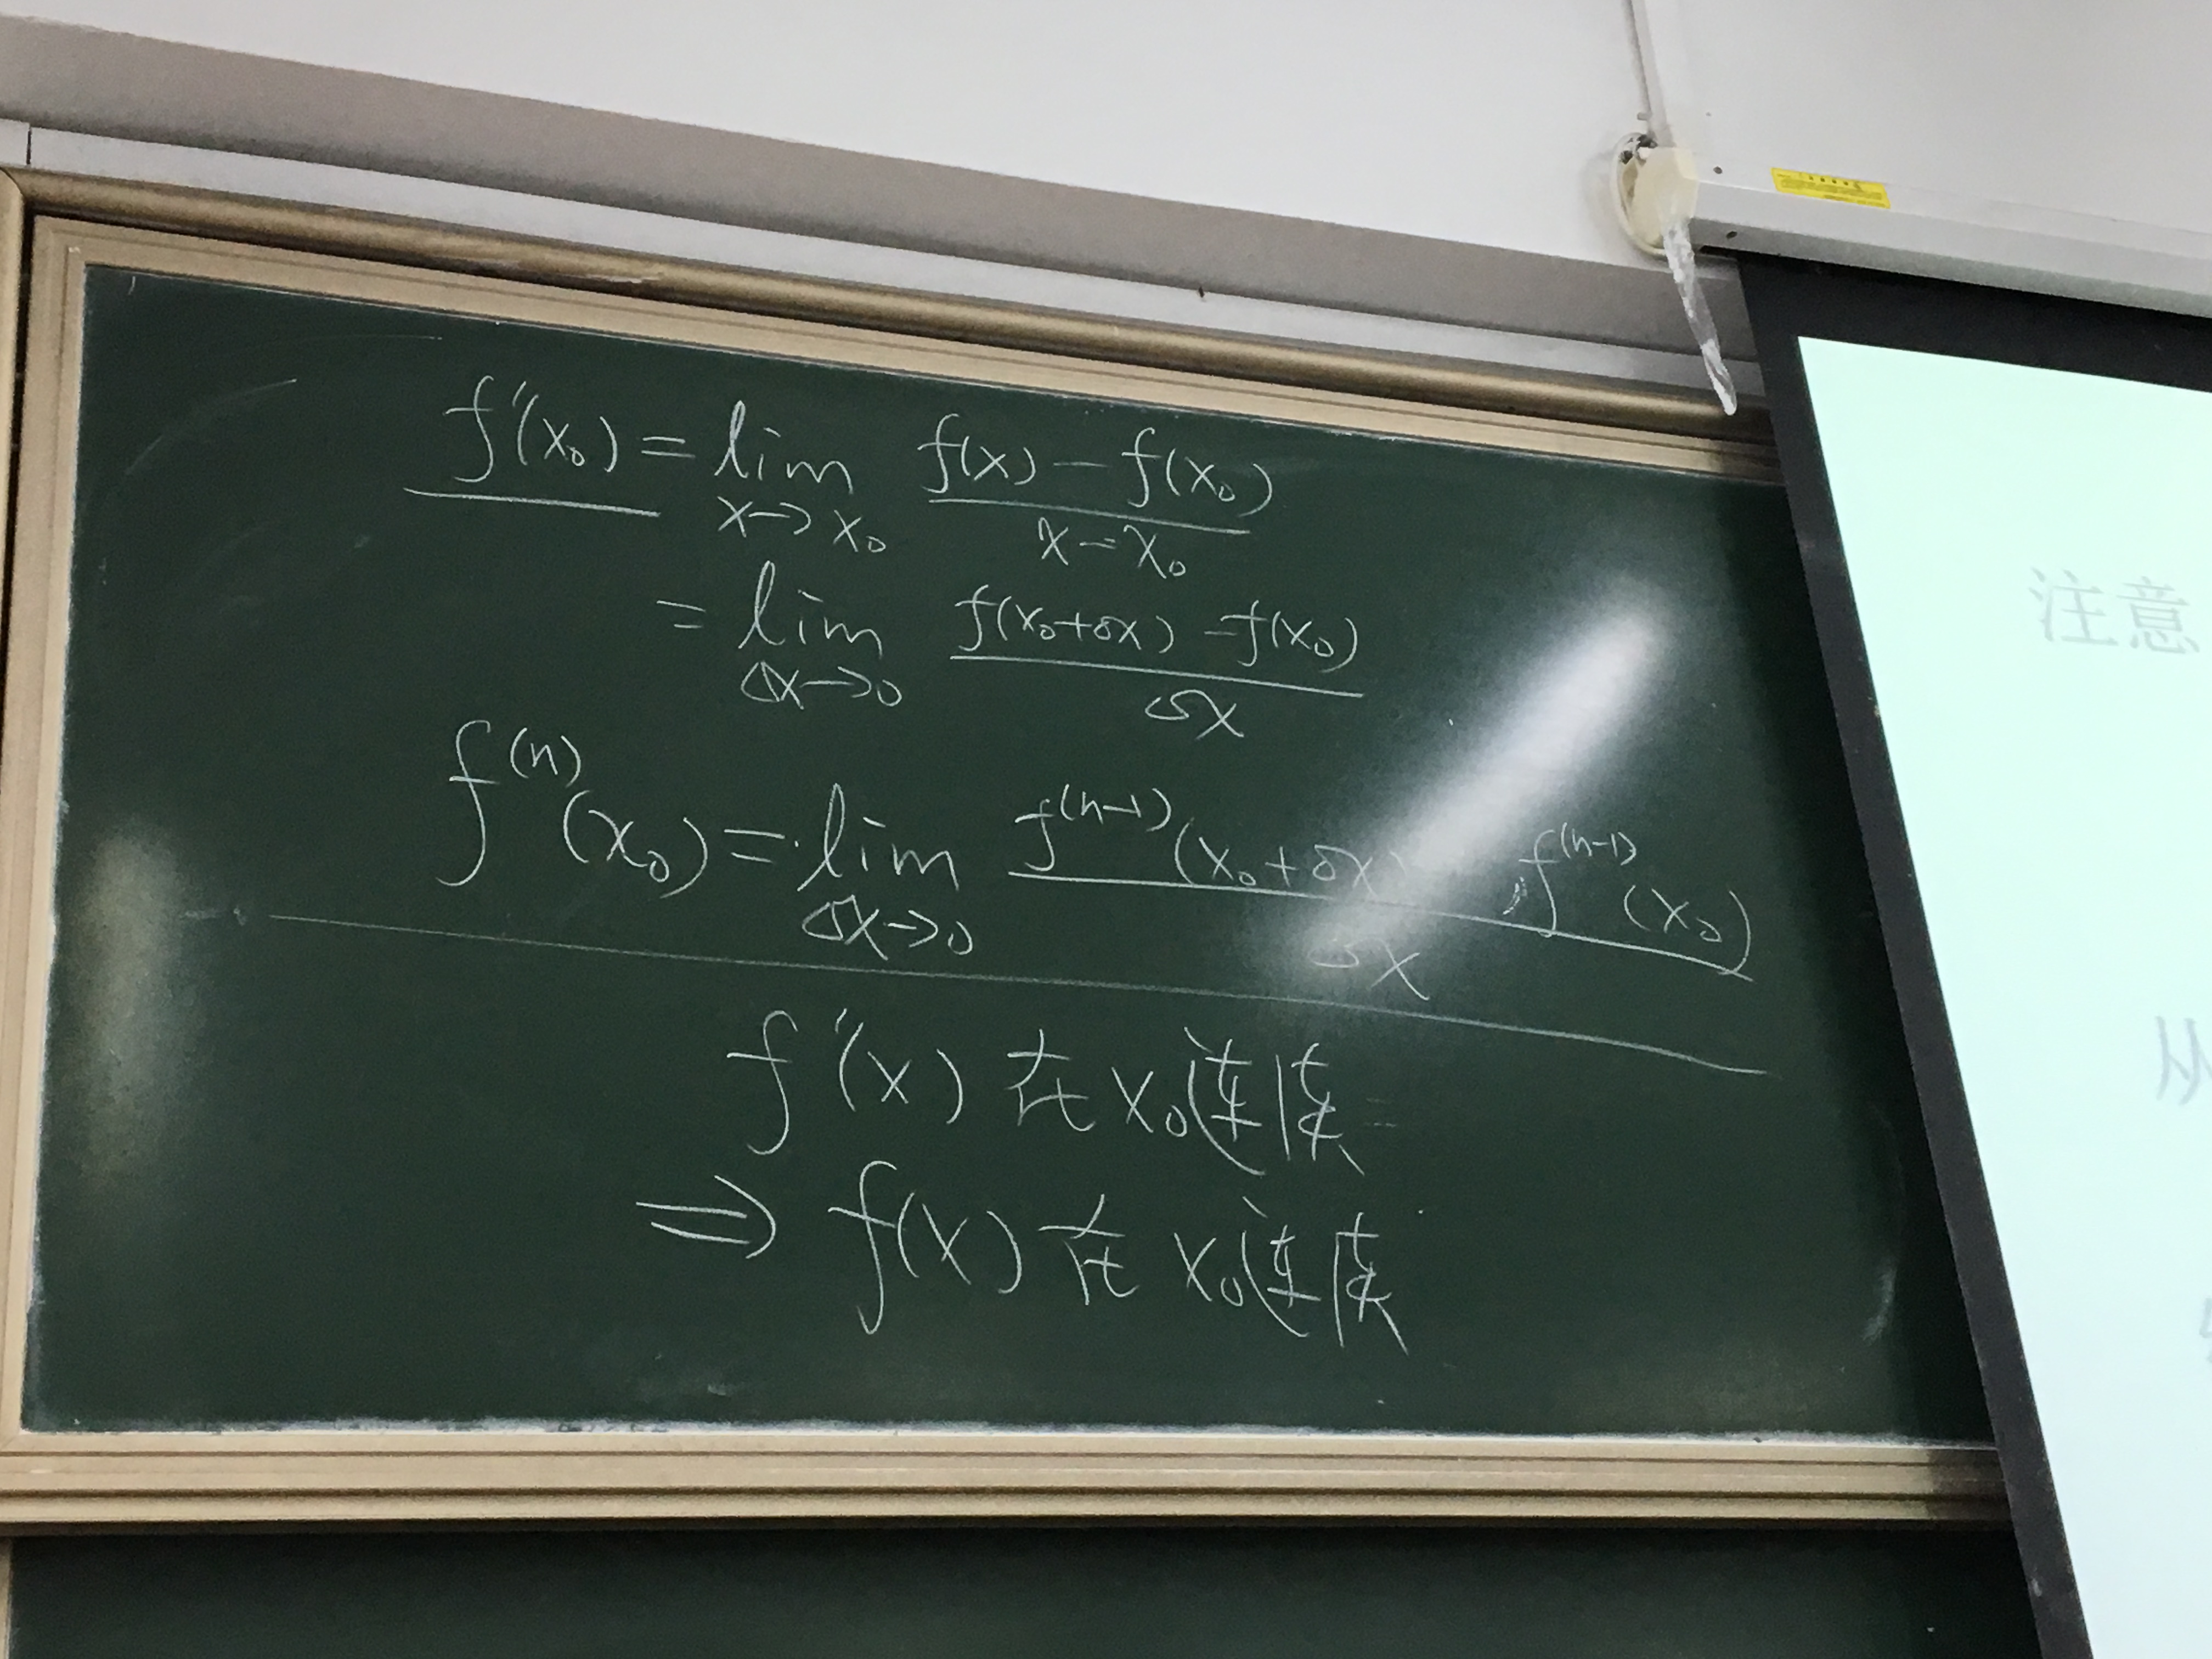 f'(x₀) = lim x→x₀ f(x) - f(x₀) / x - x₀
= lim Δx→0 f(x₀+Δx) - f(x₀) / Δx
f⁽ⁿ⁾(x₀) = lim Δx→0 f⁽ⁿ⁻¹⁾(x₀+Δx) - f⁽ⁿ⁻¹⁾(x₀) / Δx
f'(x) 在 x₀连续
⇒ f(x) 在 x₀连续
注意
从